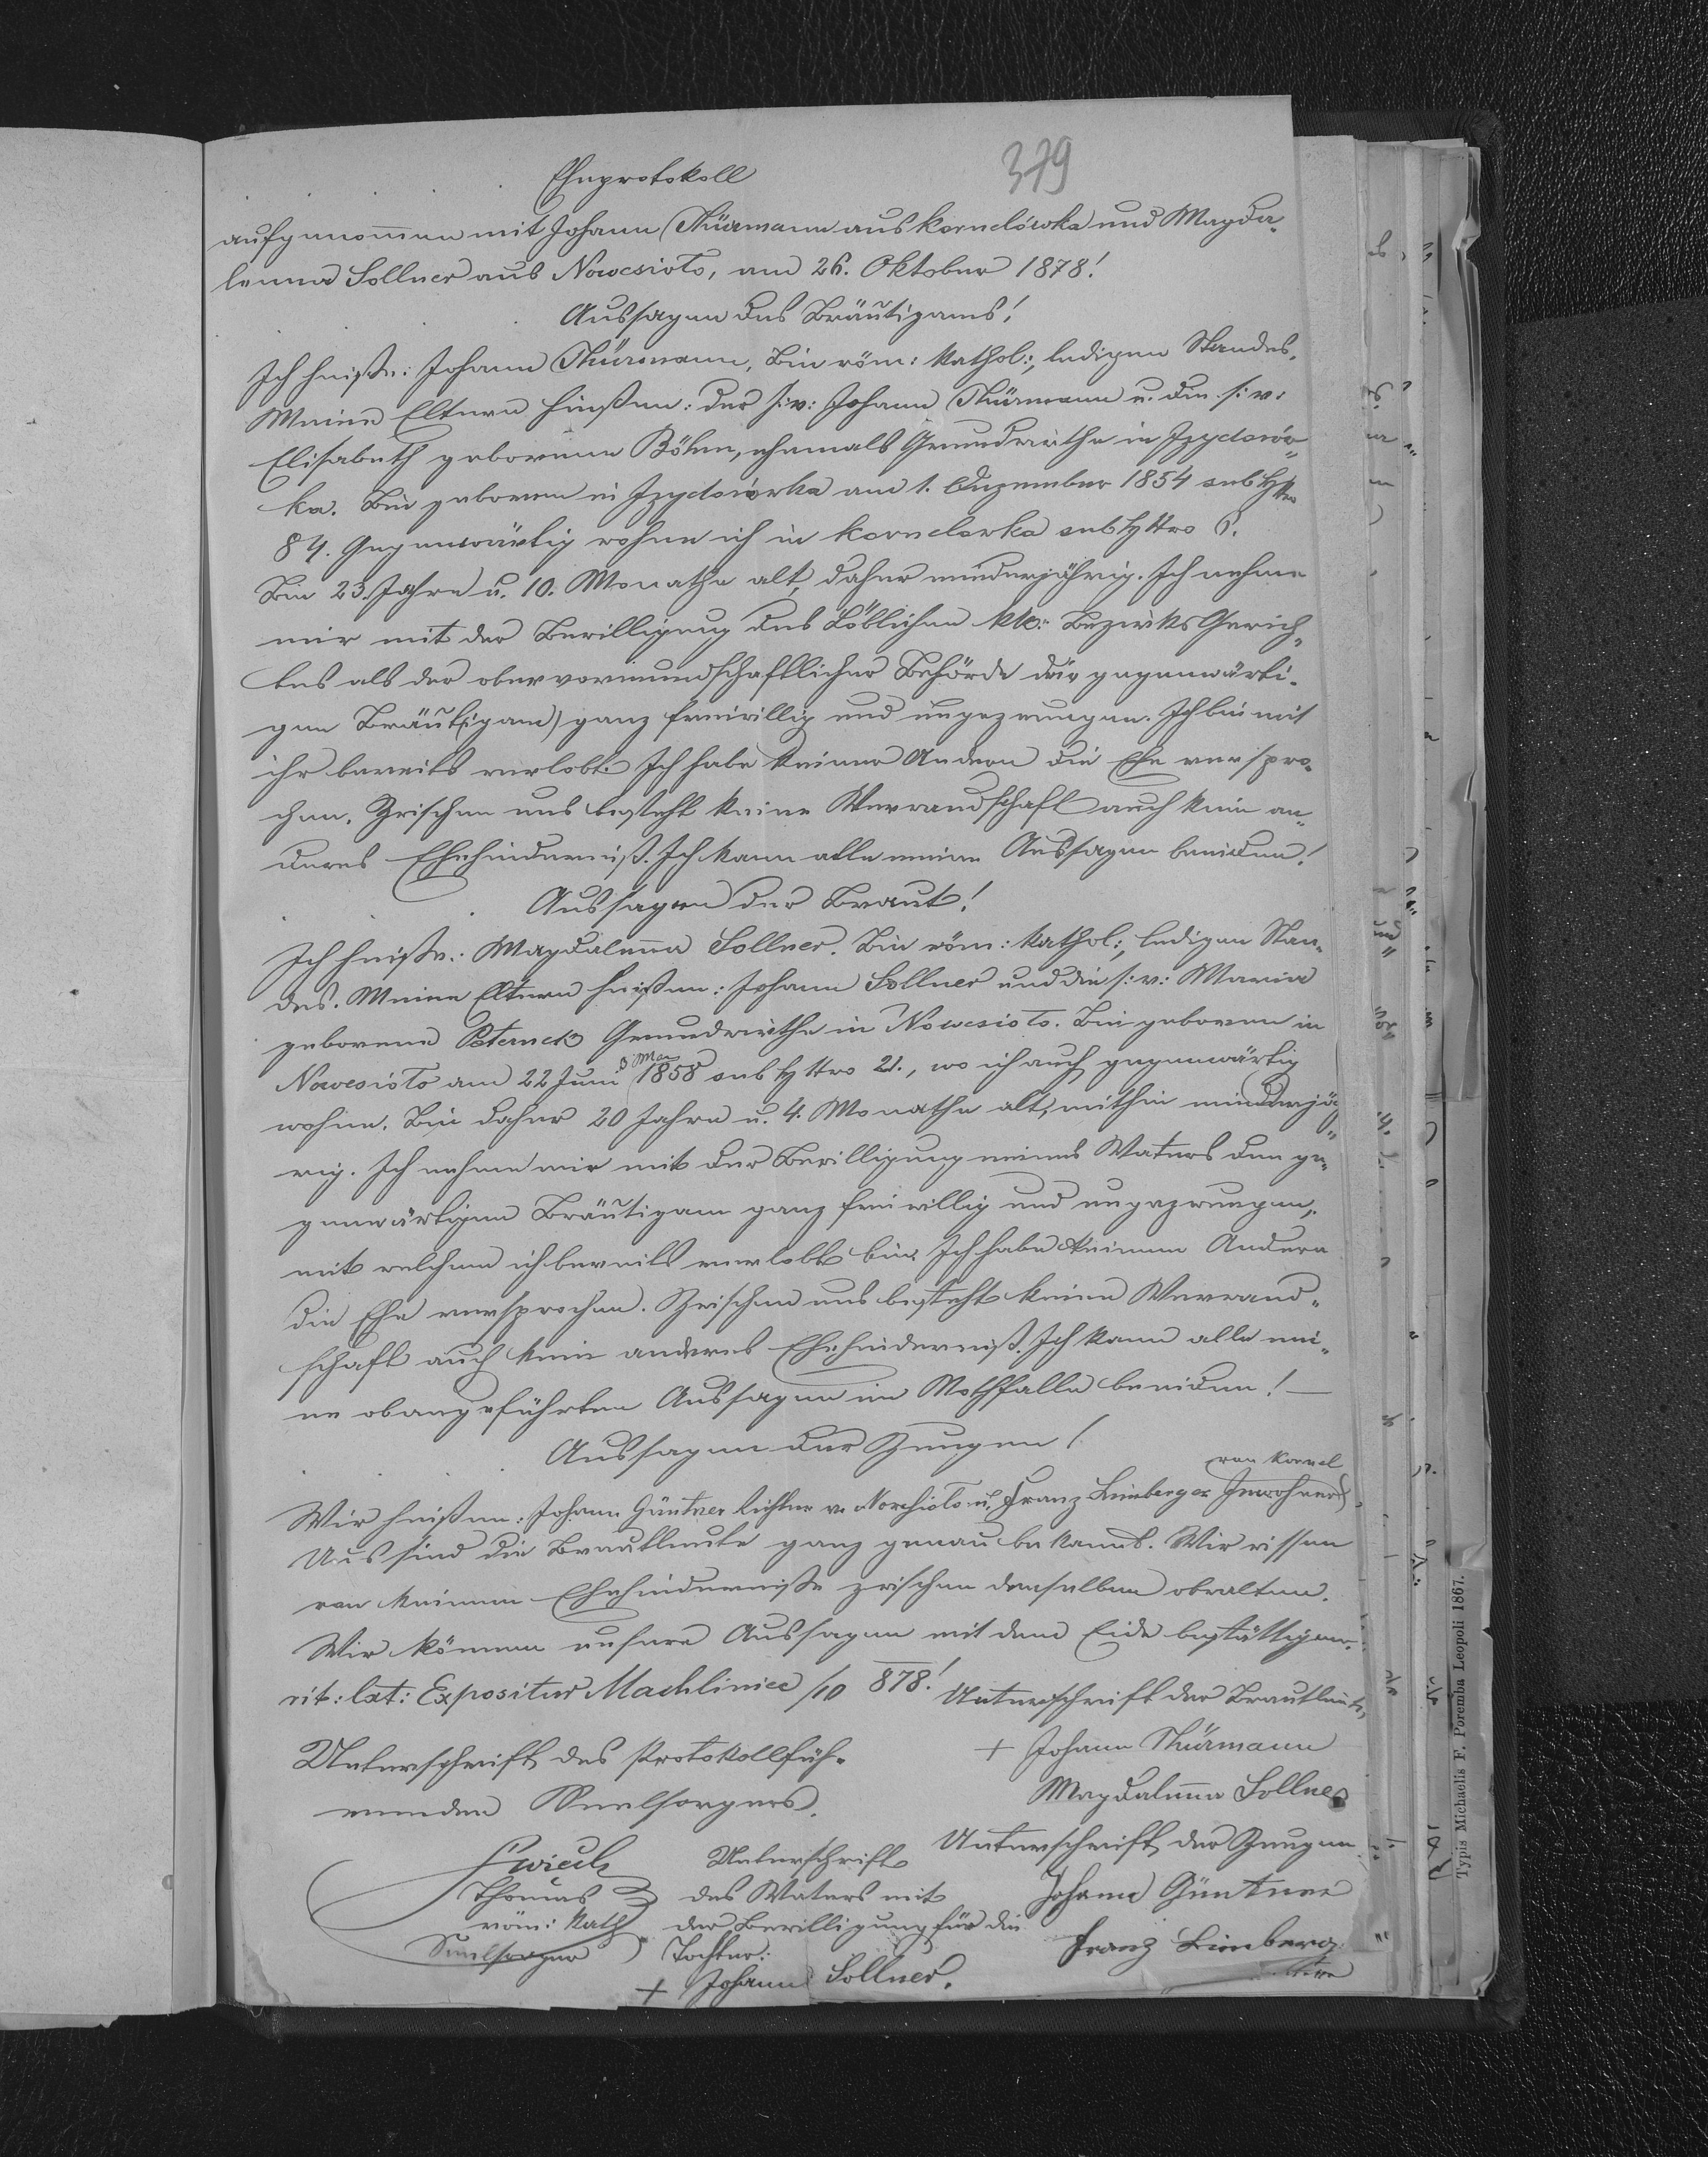 379
Eheprotokoll
aufgenommen mit Johann Thürmann aus Kornelówka und Magda„
lenna Sollner aus Nowesioło, am 26. Oktober 1878!
Aussagen des Bräutigams!
Ich heiße: Johann Thürmann, Bin röm: kathol:, ledigen Standes.
Meine Eltern hießen: der s:v: Johann Thürmann u. die s:v:
Elisabeth geborene Böhm, ehemals Grundwirthe in Izydorów„
ka. Bin geboren in Izydorówka am 1. Dezember 1854 sub H Nro
84. Gegenwärtig wohne ich in Kornelowka sub H Nro 6.
Bin 23. Jahre u. 10. Monathe alt, daher minderjährig. Ich nehme
mir mit der Bewilligung des Löblichen kk: Bezirks Gerich„
tes als der obervormundschaftlicher Behörde die gegenwärti„
gen Bräut(igam) ganz freiwillig und ungezwungen. Ich bin mit
ihr bereits verlobt. Ich habe keiner Andern die Ehe verspro„
chen. Zwischen uns besteht keine Verwandschaft auch kein an„
deres Ehehinderniß. Ich kann alle meine Aussagen beeiden!
Aussagen der Braut!
Ich heiße: Magdalenna Sollner. Bin röm: kathol:, ledigen Stan„
des. Meine Eltern heißen: Johann Sollner und die s:v: Maria
geborene Peternek Grundwirthe in Nowesioło. Bin geboren in
Nowesioło am 22 Juni 1858 sub H Nro 21., wo ich auch gegenwärtig
wohne. Bin daher 20 Jahre u. 4. Monathe alt, mithin minderjä„
rig. Ich nehme mir mit der Bewilligung meines Vaters den ge„
genwärtigen Bräutigam ganz freiwillig und ungezwungen,
mit welchem ich bereits verlobt bin. Ich habe keinem Andern
die Ehe versprochen. Zwischen uns besteht keine Verwand„
schaft auch kein anderes Ehehinderniß. Ich kann alle mei„
ne obangeführten Aussagen im Nothfalle beeiden! —
Aussagen der Zeugen!
von Kornel
Wir heißen: Johann Güntner Richter v. Nowesioło u. Franz Limberger Inwohner
Uns sind die Brautleute ganz genau bekannt. Wir wissen
von keinem Ehehinderniße zwischen denselben obwalten.
Wir können unsere Aussagen mit dem Eide bestättigen.
rit: lat: Expositur Machliniec /10 878!
Unterschrift der Brautleute
+ Johann Thürmann
Magdalenna Sollner
Unterschrift des Protokollfüh„
renden Seelsorgers.
Thomas
röm: kath
Seelsorger
Unterschrift
des Vaters mit
der Bewilligung für die
Tochter:
+ Johann Sollner.
Unterschrift der Zeugen
Johann Güntner
Franz Limberg
Typis Michaelis F. Poremba Leopoli 1867.